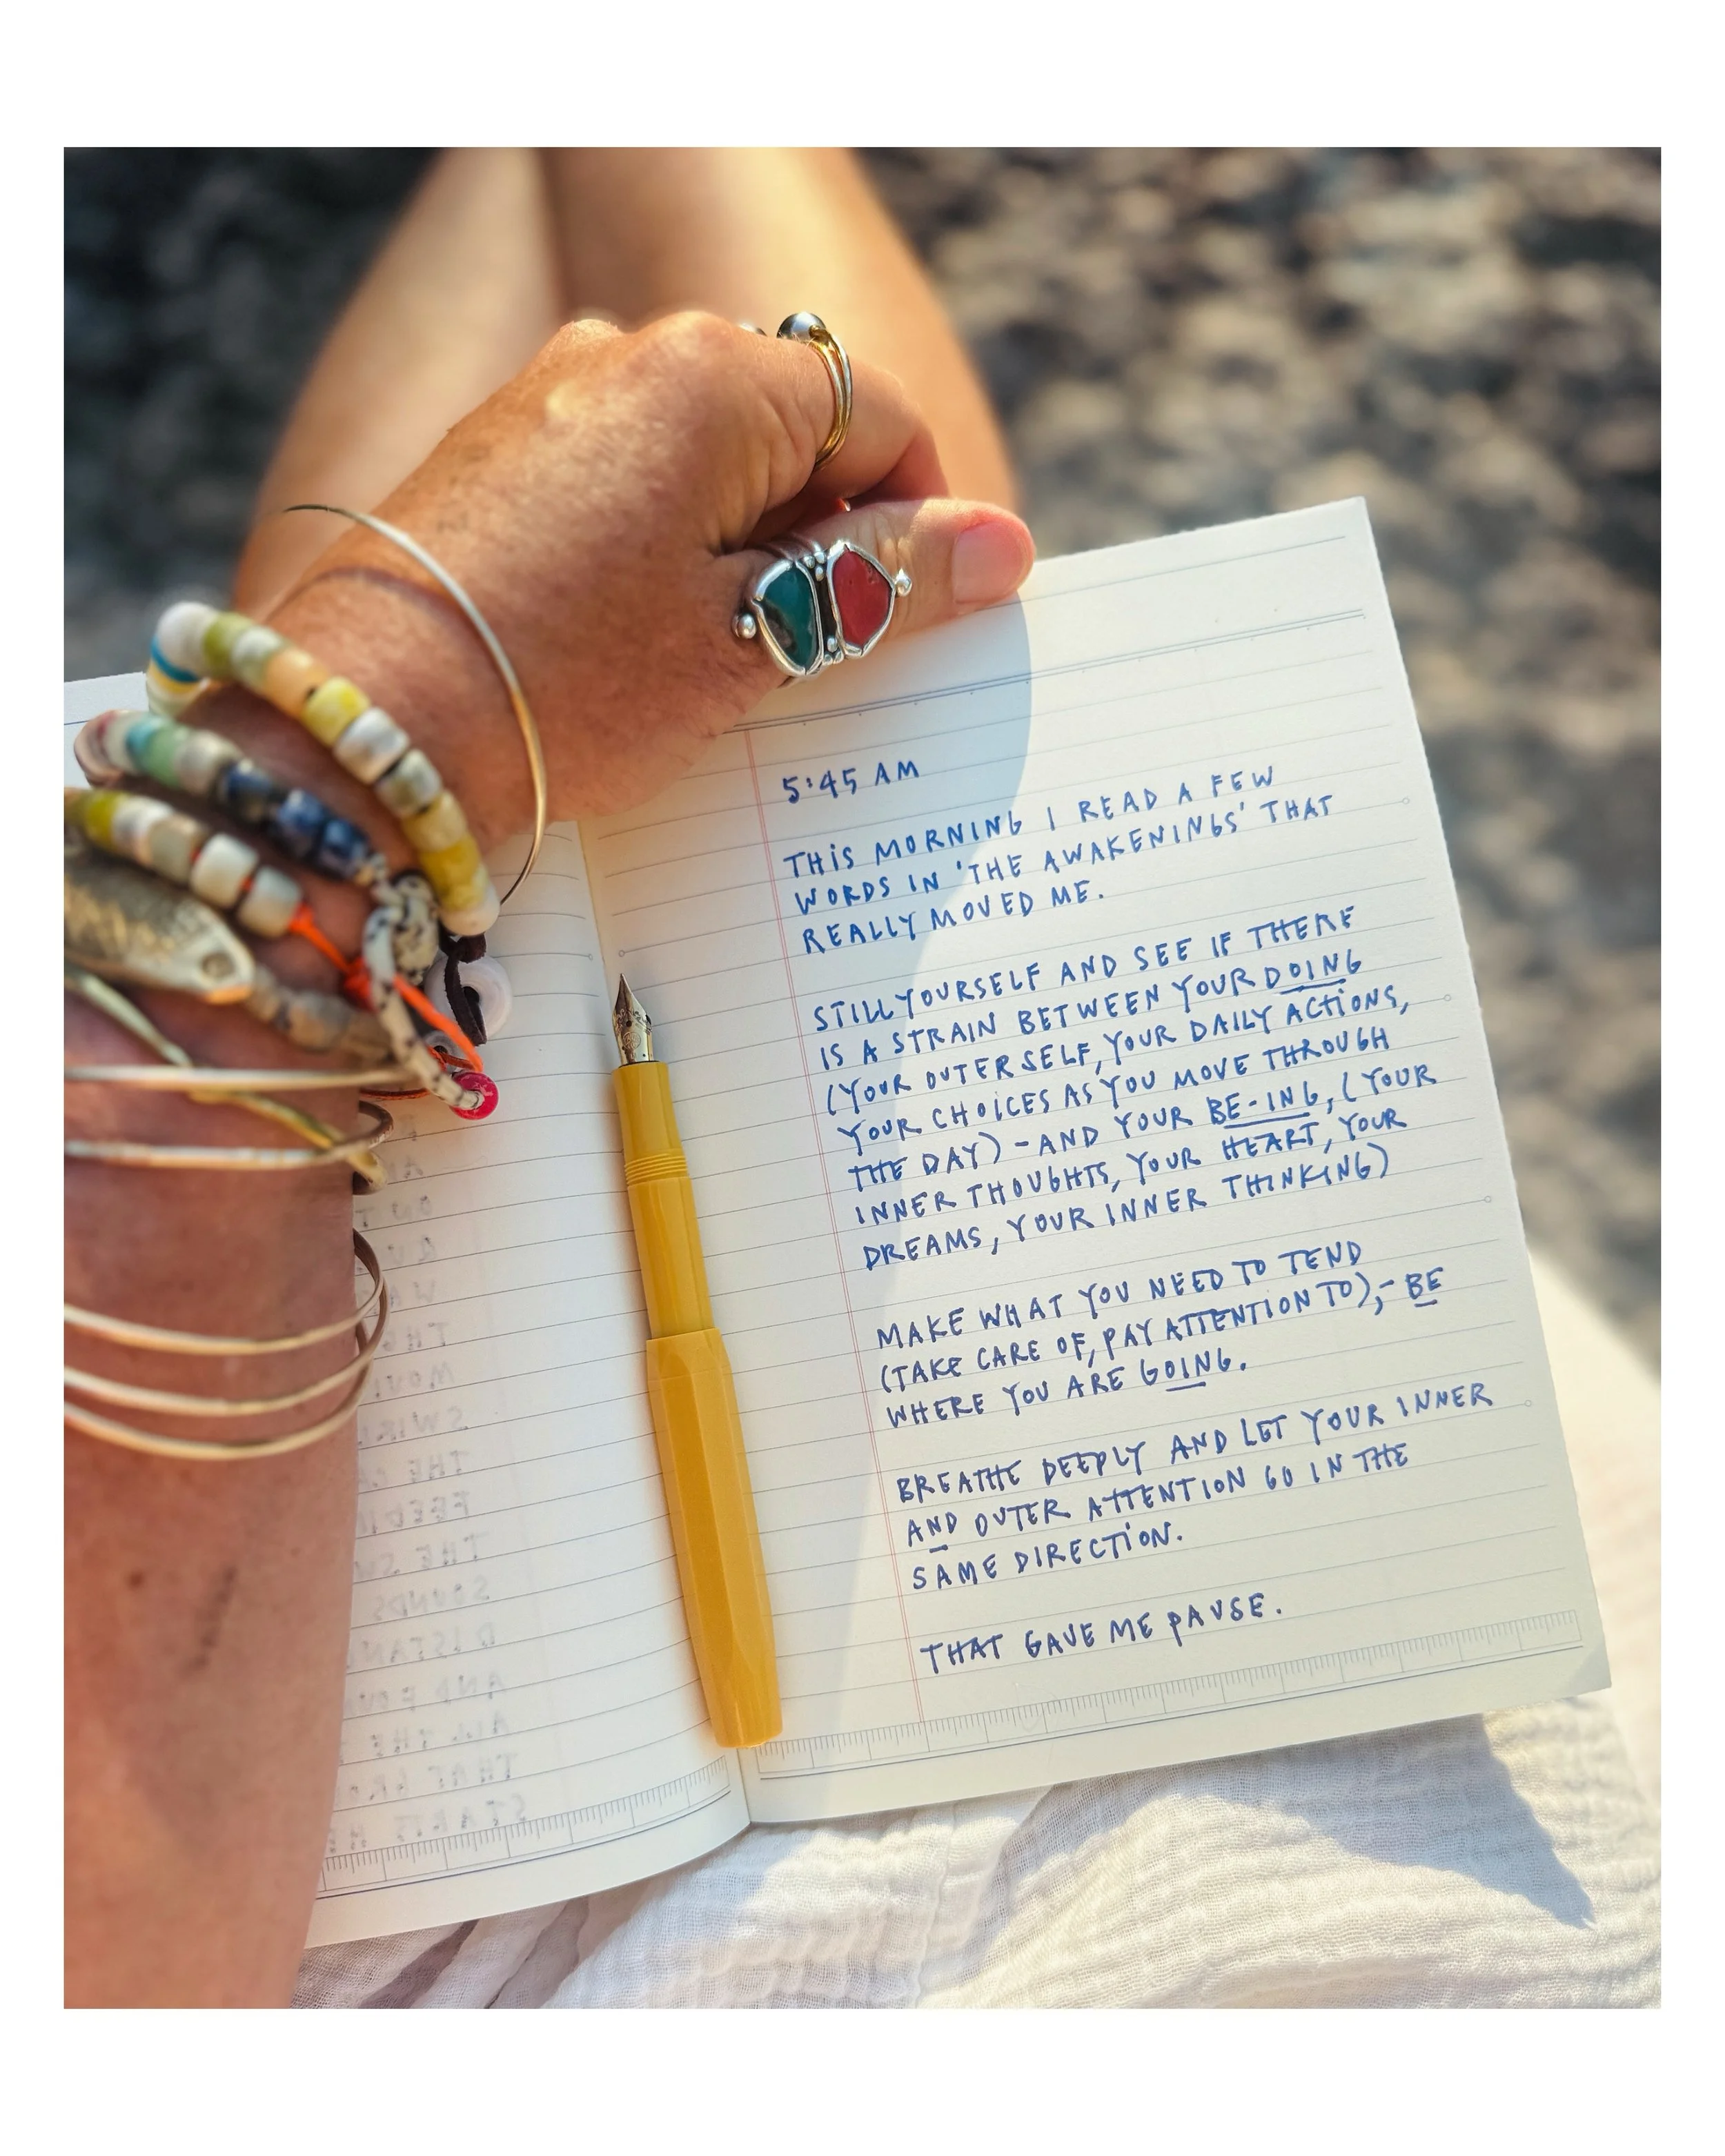 5:45 AM
THIS MORNING I READ A FEW
WORDS IN 'THE AWAKENINGS' THAT
REALLY MOVED ME.
STILL YOURSELF AND SEE IF THERE
IS A STRAIN BETWEEN YOUR DOING
(YOUR OUTER SELF, YOUR DAILY ACTIONS,
YOUR CHOICES AS YOU MOVE THROUGH
THE DAY) - AND YOUR BE-ING, (YOUR
INNER THOUGHTS, YOUR HEART, YOUR
DREAMS, YOUR INNER THINKING)
MAKE WHAT YOU NEED TO TEND
(TAKE CARE OF, PAY ATTENTION TO), - BE
WHERE YOU ARE GOING.
BREATHE DEEPLY AND LET YOUR INNER
AND OUTER ATTENTION GO IN THE
SAME DIRECTION.
THAT GAVE ME PAUSE.